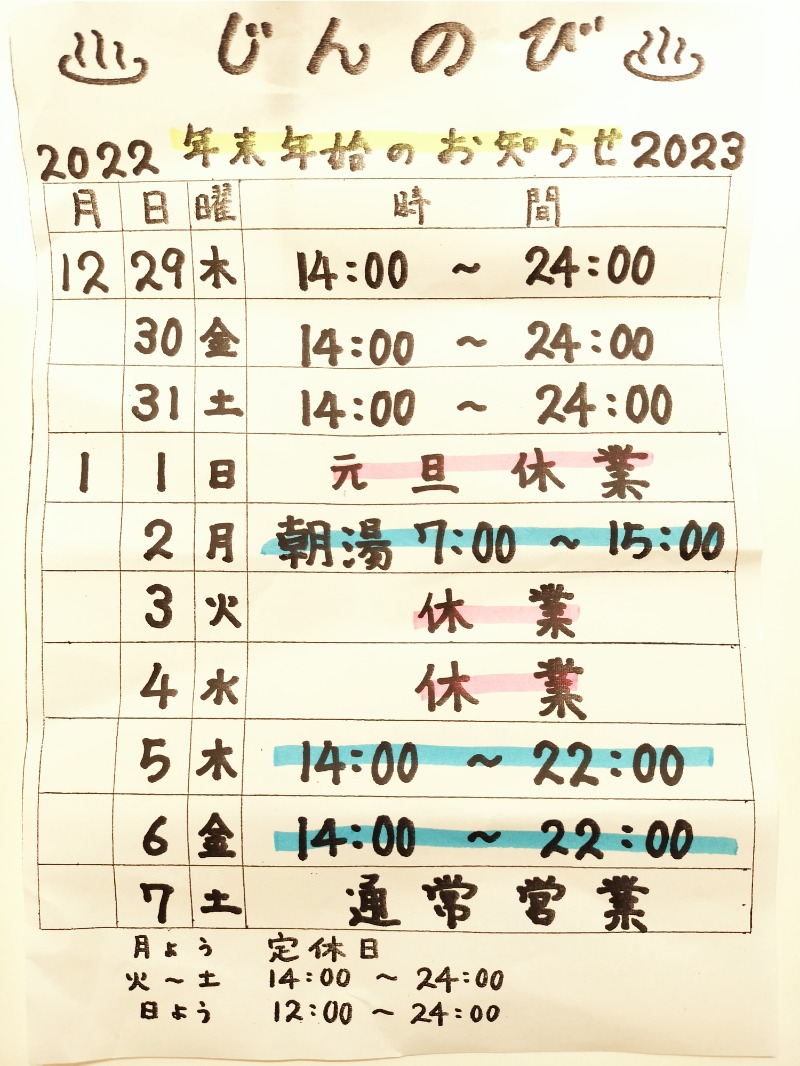 ♨ じんのび ♨
2022 年末年始のお知らせ 2023
月 日 曜 時間
12 29 木 14:00 ~ 24:00
30 金 14:00 ~ 24:00
31 土 14:00 ~ 24:00
1 1 日 元旦休業
2 月 朝湯 7:00 ~ 15:00
3 火 休業
4 水 休業
5 木 14:00 ~ 22:00
6 金 14:00 ~ 22:00
7 土 通常営業
月よう 定休日
火~土 14:00 ~ 24:00
日よう 12:00 ~ 24:00